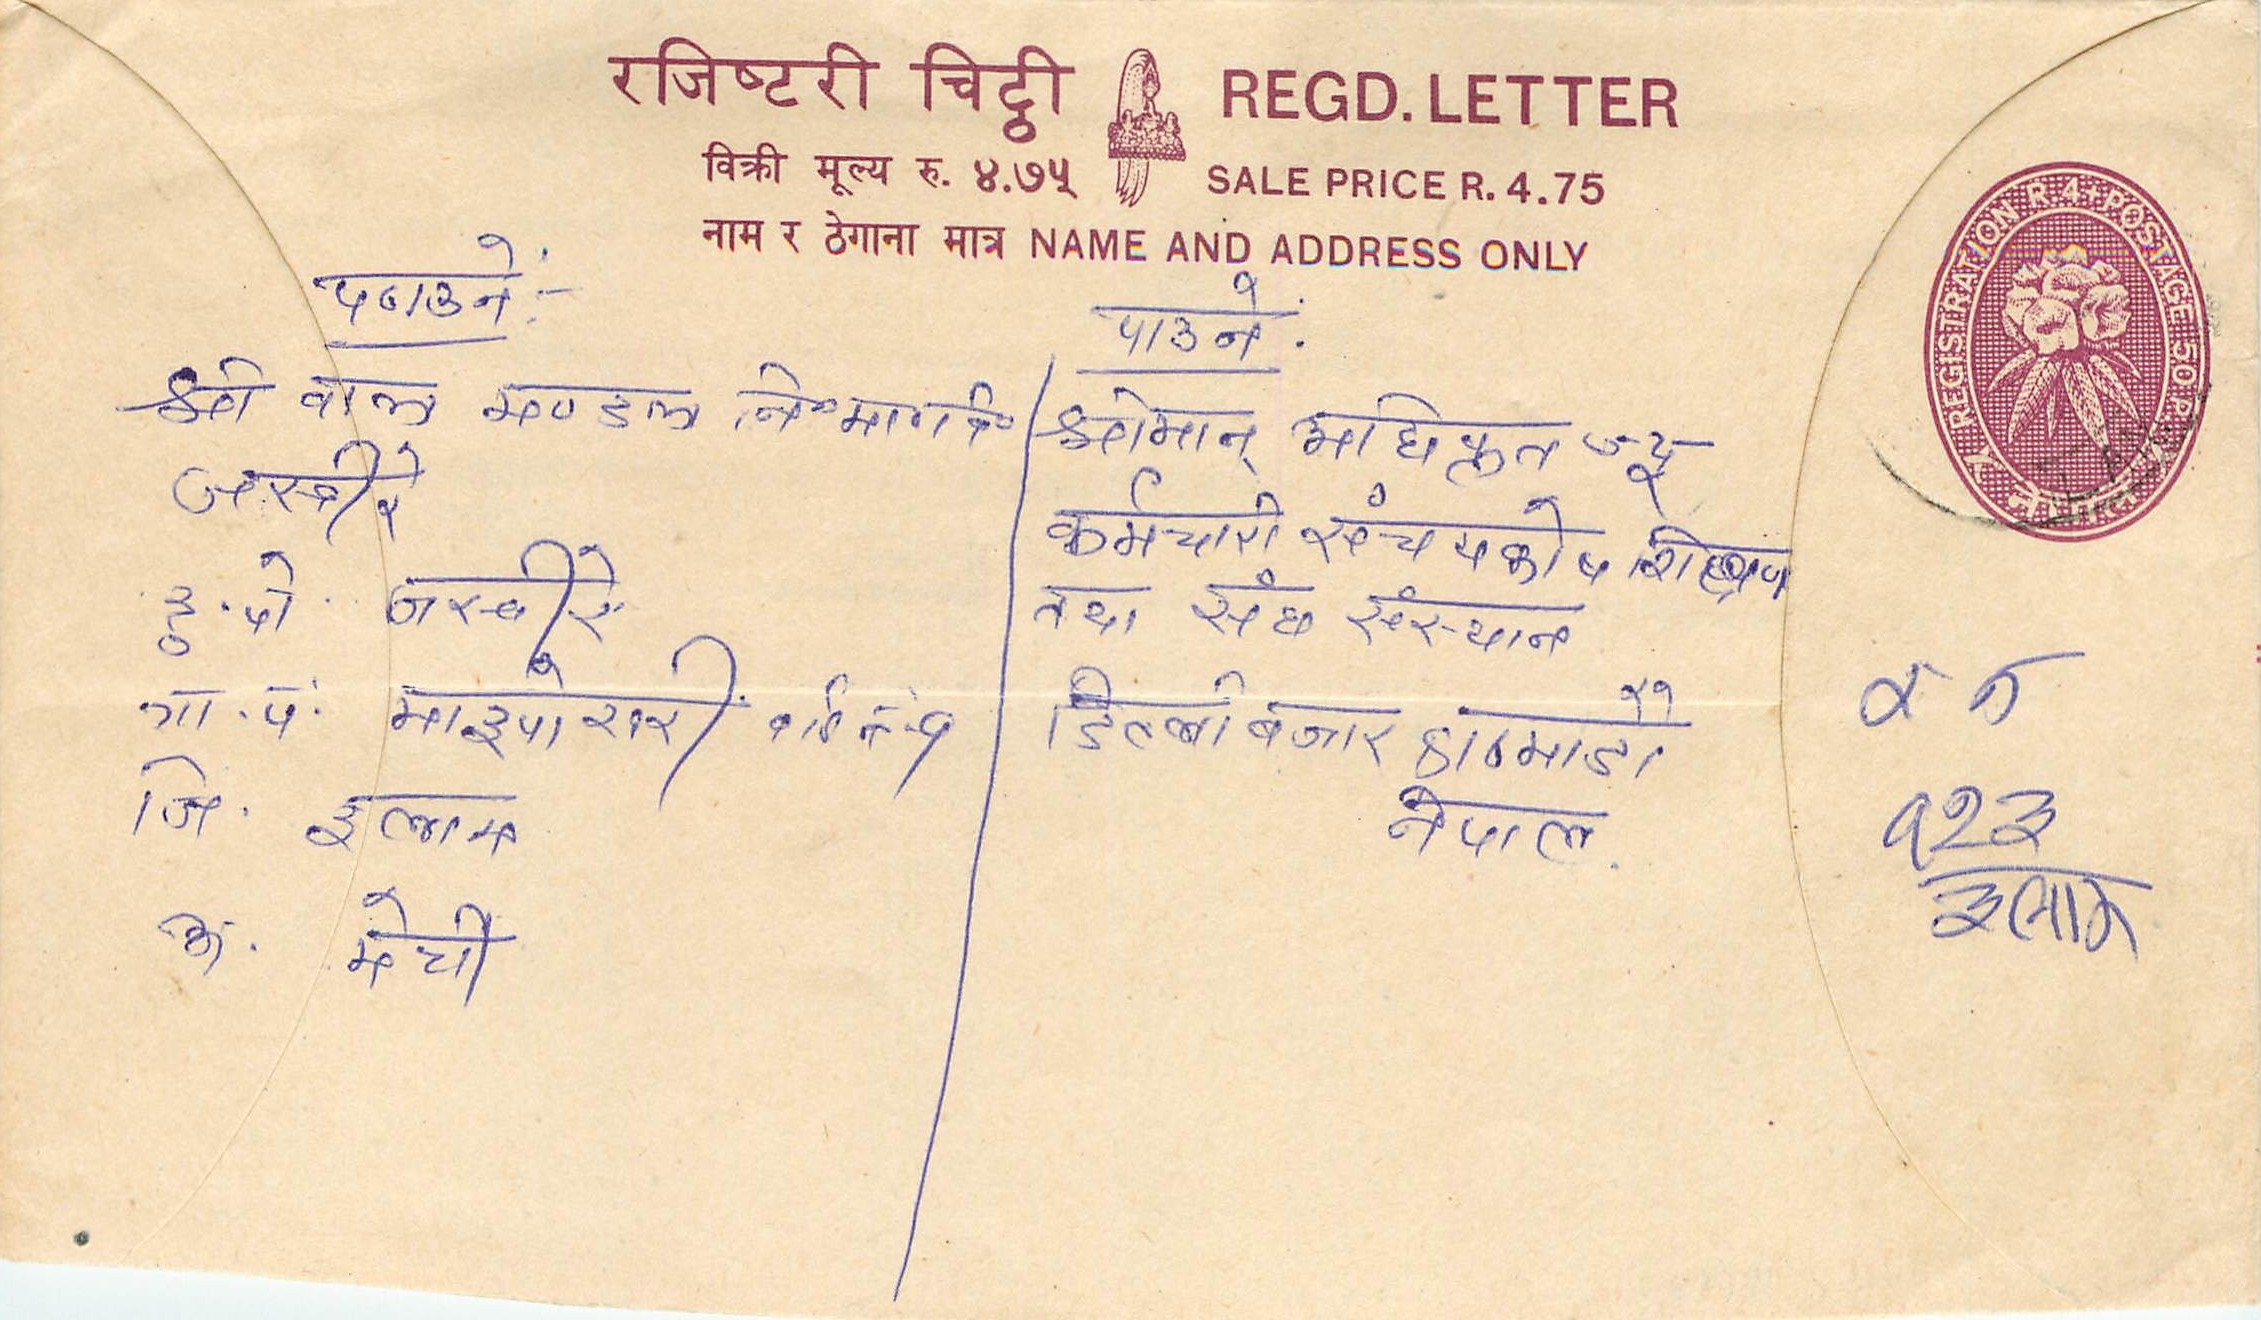 रजिष्टरी चिट्ठी REGD. LETTER
विक्री मूल्य रु. ४.७५ SALE PRICE R. 4.75
नाम र ठेगाना मात्र NAME AND ADDRESS ONLY
REGISTRATION R.4+POSTAGE 50 P.
पठाउने :-
श्री वाल मण्डल नि॰मा॰वि॰
जस्वीरे
हु. पो. जस्वीरे
गा. पं. माइपोखरी
जि. इलाम
अं. मेची
पाउने :
श्रीमान् अधिकृत ज्यू
कर्मचारी संचयकोष शिक्षण
तथा संघ संस्थान
डिल्लीबजार काठमाडौं
नेपाल.
१२३
इलाम